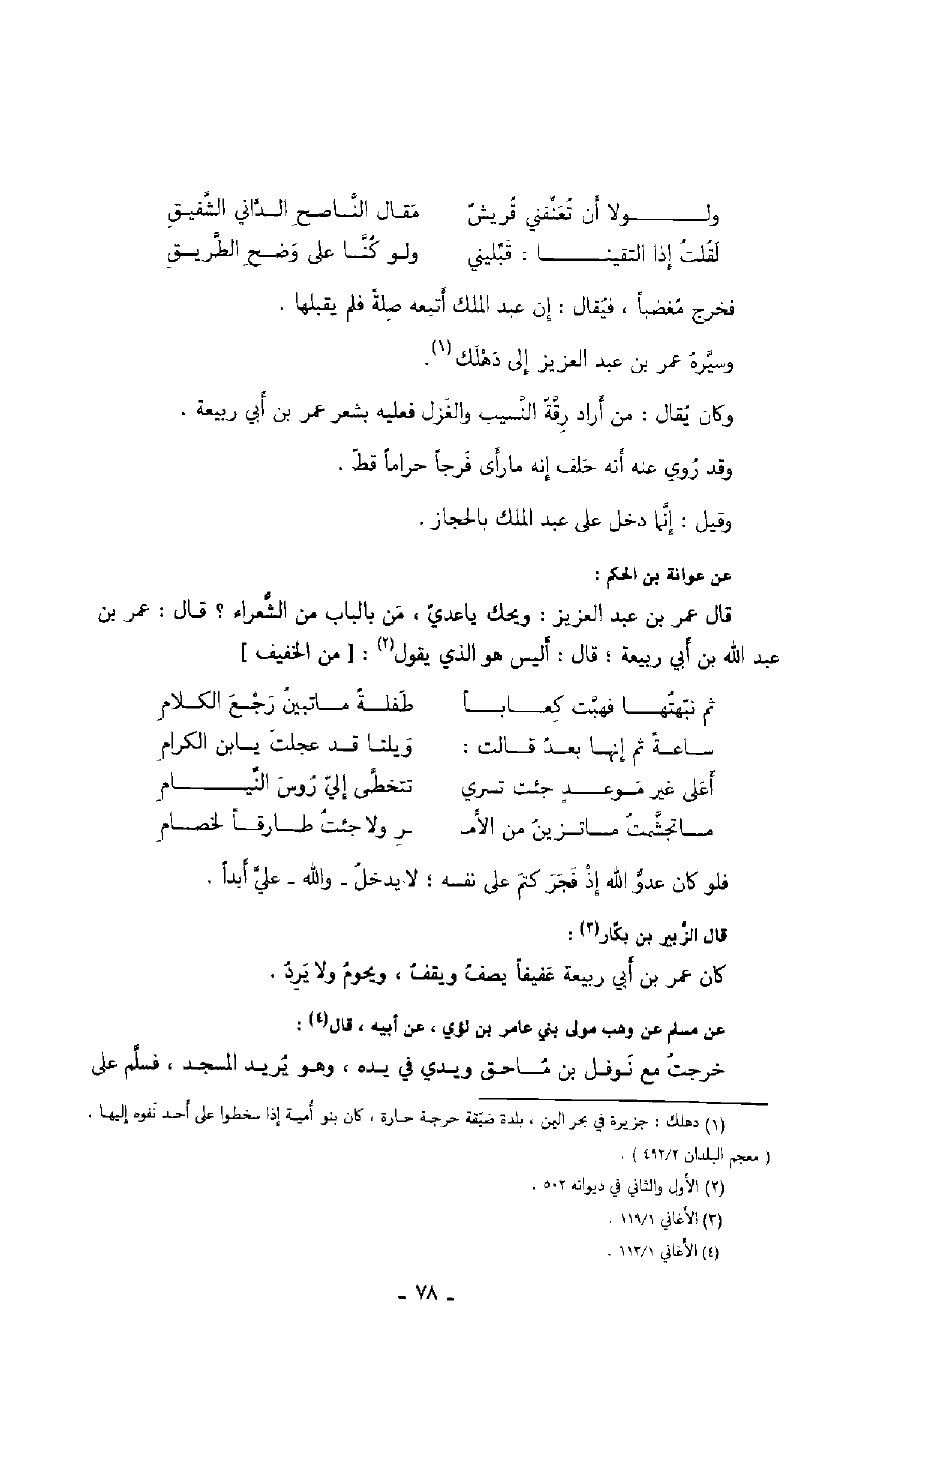 ولولا أن تُعَنِّفني قُريشٌ مَقال النَّاصحِ الدَّاني الشَّفيقِ
لَقُلتُ إذا التقينا : قَبِّليني ولو كُنَّا على وَضحِ الطَّريقِ
فخرج مُغضباً ، فيُقال : إن عبد الملك أتبعه صِلةً فلم يقبلها .
وسيَّرهُ عمر بن عبد العزيز إلى دَهْلَك(١).
وكان يُقال : من أراد رِقَّةَ النَّسيب والغَزل فعليه بشعر عمر بن أبي ربيعة .
وقد رُوي عنه أنه حَلف إنه مارأى فَرجاً حراماً قطّ .
وقيل : إنَّما دخل على عبد الملك بالحجاز .
عن عوانة بن الحكم :
قال عمر بن عبد العزيز : ويحك ياعديّ ، مَن بالباب من الشُّعراء ؟ قال : عمر بن
عبد الله بن أبي ربيعة ؛ قال : أليس هو الذي يقول(٢) : [ من الخفيف ]
ثم نبّهتُها فهبَّت كِعاباً طَفلةً ماتبينُ رَجْعَ الكلامِ
ساعةً ثم إنها بعدُ قالت : وَيلتا قد عجلتَ يابن الكرامِ
أعَلى غير مَوعدٍ جئت تسري تتخطَّى إليّ رُوسَ النِّيامِ
ماتجشَّمتُ ماتزينُ من الأمـ ـرِ ولا جئتُ طارقاً لخصامِ
فلو كان عدوُّ الله إذْ فَجَرَ كتمَ على نفسه ؛ لا يدخلُ ـ والله ـ عليَّ أبداً .
قال الزُّبير بن بكّار(٣) :
كان عمر بن أبي ربيعة عَفيفاً يصفُ ويقفُ ، ويحومُ ولا يَرِدُ .
عن مسلم عن وهب مولى بني عامر بن لؤي ، عن أبيه ، قال(٤) :
خرجتُ مع نَوفل بن مُساحق ويدي في يده ، وهو يُريد المسجد ، فسلَّم على
(١) دهلك : جزيرة في بحر اليمن ، بلدة ضيّقة حرجة حارة ، كان بنو أمية إذا سخطوا على أحد نَفوه إليها .
( معجم البلدان ٤٩٢/٢ ) .
(٢) الأول والثاني في ديوانه ٥٠٢ .
(٣) الأغاني ١١٩/١ .
(٤) الأغاني ١١٣/١ .
ـ ٧٨ ـ